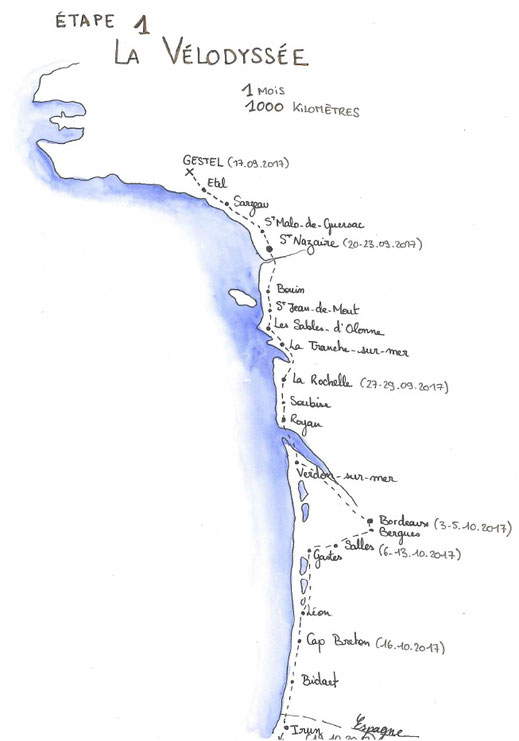 ÉTAPE 1
LA VÉLODYSSÉE
1 MOIS
1000 KILOMÈTRES
GESTEL (17.09.2017)
Etel
Sarzeau
St Malo-de-Guersac
St Nazaire (20-23.09.2017)
Bouin
St Jean-de-Mont
Les Sables-d'Olonne
La Tranche-sur-mer
La Rochelle (27-29.09.2017)
Soubise
Royan
Verdon-sur-mer
Bordeaux (3-5.10.2017)
Bergues
Salles (6-13.10.2017)
Gastes
Léon
Cap Breton (16.10.2017)
Bidart
Espagne
Irun